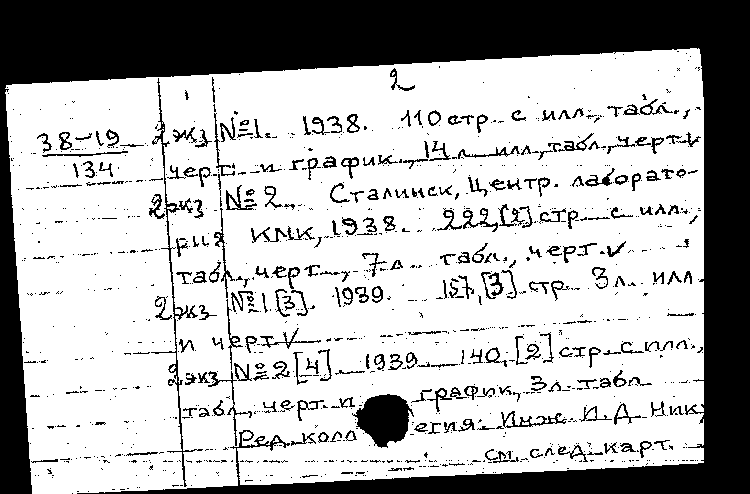 2
38-19 2экз №1. 1938. 110 стр. с илл., табл.,
134 черт. и график., 14 л. илл., табл., черт. v
2экз №2. Сталинск, Центр. лаборато-
рия КМК, 1938. 222,[2] стр. с илл.,
табл., черт., 7 л. табл., черт. v
2экз №1[3]. 1939. 157,[3] стр. 3 л. илл.
и черт. v
2экз №2[4]. 1939. 140,[2] стр. с илл.,
табл., черт. и график, 3 л. табл.
Ред. коллегия: Инж. И. Д. Ник
см. след. карт.